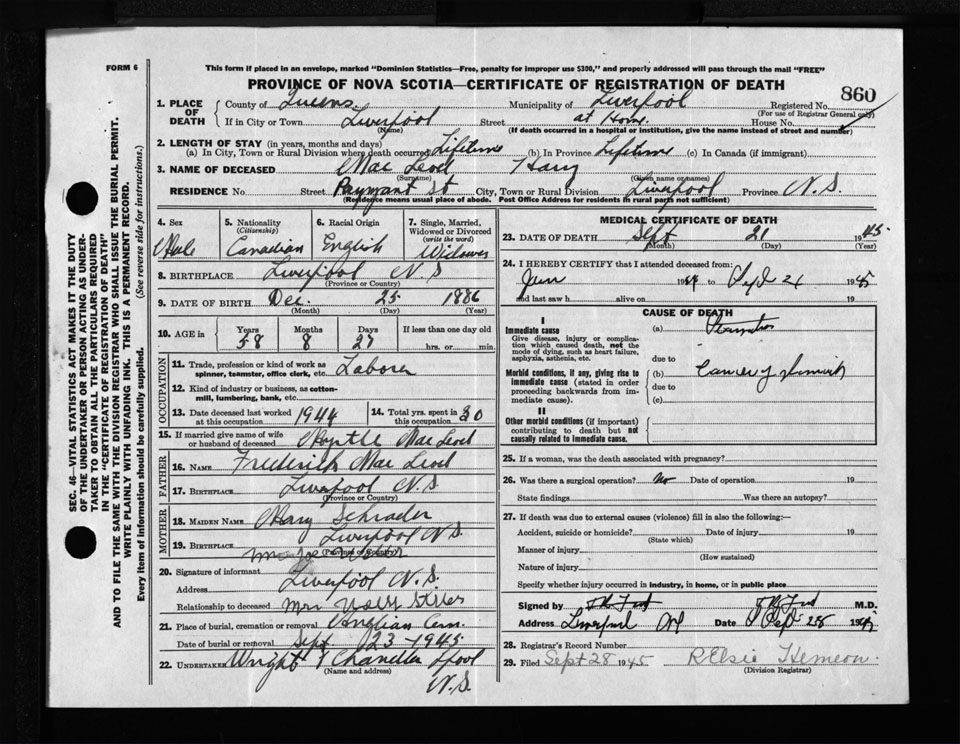 FORM 6
This form if placed in an envelope, marked "Dominion Statistics—Free, penalty for improper use $300," and properly addressed will pass through the mail "FREE"
PROVINCE OF NOVA SCOTIA—CERTIFICATE OF REGISTRATION OF DEATH
860
SEC. 46—VITAL STATISTICS ACT MAKES IT THE DUTY
OF THE UNDERTAKER OR PERSON ACTING AS UNDER-
TAKER TO OBTAIN ALL THE PARTICULARS REQUIRED
IN THE "CERTIFICATE OF REGISTRATION OF DEATH"
AND TO FILE THE SAME WITH THE DIVISION REGISTRAR WHO SHALL ISSUE THE BURIAL PERMIT.
WRITE PLAINLY WITH UNFADING INK. THIS IS A PERMANENT RECORD.
Every item of information should be carefully supplied. (See reverse side for instructions.)
1. PLACE OF DEATH
County of Queens Municipality of Liverpool Registered No.
(For use of Registrar General only)
If in City or Town Liverpool Street at Home House No.
(Name) (If death occurred in a hospital or institution, give the name instead of street and number)
2. LENGTH OF STAY (in years, months and days)
(a) In City, Town or Rural Division where death occurred Lifetime (b) In Province Lifetime (c) In Canada (if immigrant)
3. NAME OF DECEASED Mac Leod Harry
(Surname) (Given name or names)
RESIDENCE No Street City, Town or Rural Division Liverpool Province N.S.
(Residence means usual place of abode. Post Office Address for residents in rural parts not sufficient)
4. Sex 5. Nationality (Citizenship) 6. Racial Origin 7. Single, Married, Widowed or Divorced (write the word)
Male Canadian English Widower
8. BIRTHPLACE Liverpool N S
(Province or Country)
9. DATE OF BIRTH Dec. 25 1886
(Month) (Day) (Year)
10. AGE in Years Months Days If less than one day old
58 8 27 hrs. or min.
OCCUPATION
11. Trade, profession or kind of work as spinner, teamster, office clerk, etc. Laborer
12. Kind of industry or business, as cotton-mill, lumbering, bank, etc.
13. Date deceased last worked at this occupation 1944 14. Total yrs. spent in 30
15. If married give name of wife or husband of deceased Myrtle Mac Leod
FATHER
16. NAME Frederick Mac Leod
17. BIRTHPLACE Liverpool N.S.
(Province or Country)
MOTHER
18. MAIDEN NAME Mary Schrader
19. BIRTHPLACE Liverpool N.S.
(Province or Country)
20. Signature of informant
Address Liverpool N.S.
Relationship to deceased Mrs
21. Place of burial, cremation or removal Anglian Cem.
Date of burial or removal Sept. 23-1945
22. UNDERTAKER Wright & Chandler Lpool
(Name and address)
N.S.
MEDICAL CERTIFICATE OF DEATH
23. DATE OF DEATH Sept 21 1945
(Month) (Day) (Year)
24. I HEREBY CERTIFY that I attended deceased from:
to Sept 21 1945
and last saw h alive on 19
CAUSE OF DEATH
I
Immediate cause (a)
Give disease, injury or complication which caused death, not the mode of dying, such as heart failure, asphyxia, asthenia, etc.
due to
Morbid conditions, if any, giving rise to immediate cause (stated in order proceeding backwards from immediate cause). (b) Cancer of
due to
(c)
II
Other morbid conditions (if important) contributing to death but not causally related to immediate cause.
25. If a woman, was the death associated with pregnancy?
26. Was there a surgical operation? No Date of operation 19
State findings Was there an autopsy?
27. If death was due to external causes (violence) fill in also the following:—
Accident, suicide or homicide? Date of injury 19
(State which)
Manner of injury
(How sustained)
Nature of injury
Specify whether injury occurred in industry, in home, or in public place
Signed by M.D.
Address Liverpool Date Sept 28 1945
28. Registrar's Record Number
29. Filed Sept 28 1945 R Elsie Hemeon
(Division Registrar)